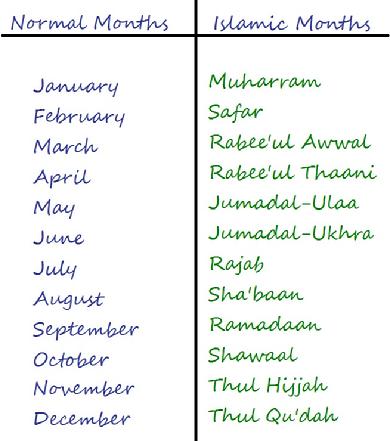 Normal Months Islamic Months
January Muharram
February Safar
March Rabee'ul Awwal
April Rabee'ul Thaani
May Jumadal-Ulaa
June Jumadal-Ukhra
July Rajab
August Sha'baan
September Ramadaan
October Shawaal
November Thul Hijjah
December Thul Qu'dah